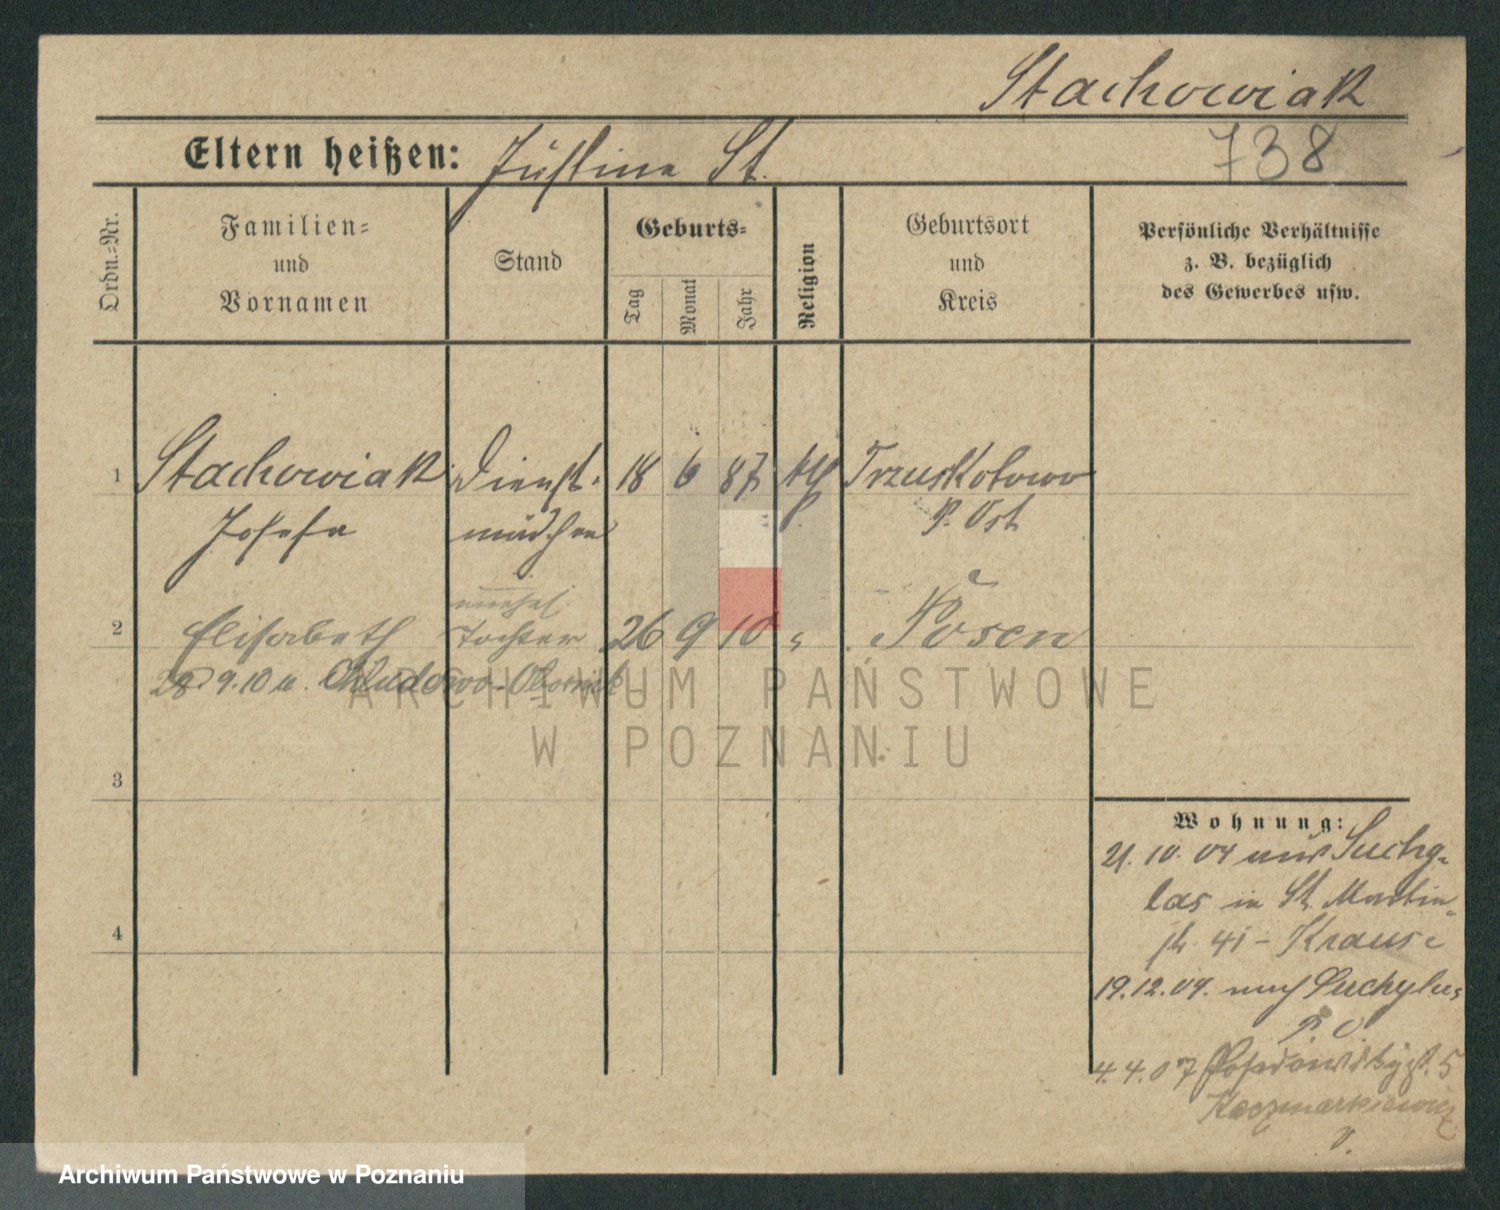 Stachowiak
738
Eltern heißen: Justine St.
Ordn.-Nr.
Familien- und Vornamen
Stand
Geburts-
Tag
Monat
Jahr
Religion
Geburtsort und Kreis
Persönliche Verhältnisse z. B. bezüglich des Gewerbes usw.
1 Stachowiak Dienst- 18 6 87 kth Trzuskotowo
Josefa mädchen P. Ost
unehel.
2 Elisabeth Tochter 26 9 10 " Posen
28.9.10 n. Chludowo-Obornik
3
4
Wohnung:
21.10.04 aus Suchy-
las in St. Martin-
str. 41 - Krause
19.12.04. nach Suchylas
P. O
4.4.07 5
Kaczmarkiewicz
ARCHIWUM PAŃSTWOWE
W POZNANIU
Archiwum Państwowe w Poznaniu